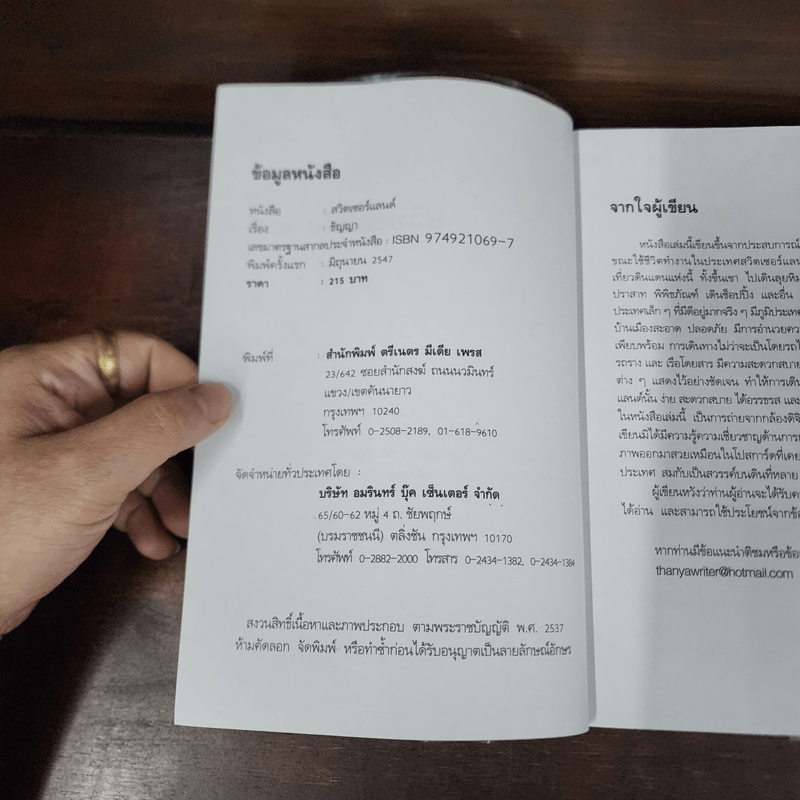 ข้อมูลหนังสือ
หนังสือ : สวิตเซอร์แลนด์
เรื่อง : ธัญญา
เลขมาตรฐานสากลประจำหนังสือ : ISBN 974921069-7
พิมพ์ครั้งแรก : มิถุนายน 2547
ราคา : 215 บาท
พิมพ์ที่ : สำนักพิมพ์ ตรีเนตร มีเดีย เพรส
23/642 ซอยสำนักสงฆ์ ถนนนวมินทร์
แขวง/เขตคันนายาว
กรุงเทพฯ 10240
โทรศัพท์ 0-2508-2189, 01-618-9610
จัดจำหน่ายทั่วประเทศโดย :
บริษัท อมรินทร์ บุ๊ค เซ็นเตอร์ จำกัด
65/60-62 หมู่ 4 ถ. ชัยพฤกษ์
(บรมราชชนนี) ตลิ่งชัน กรุงเทพฯ 10170
โทรศัพท์ 0-2882-2000 โทรสาร 0-2434-1382, 0-2434-1384
สงวนสิทธิ์เนื้อหาและภาพประกอบ ตามพระราชบัญญัติ พ.ศ. 2537
ห้ามคัดลอก จัดพิมพ์ หรือทำซ้ำก่อนได้รับอนุญาตเป็นลายลักษณ์อักษร
จากใจผู้เขียน
หนังสือเล่มนี้เขียนขึ้นจากประสบการณ์
ขณะใช้ชีวิตทำงานในประเทศสวิตเซอร์แลน
เที่ยวดินแดนแห่งนี้ ทั้งขึ้นเขา ไปเดินลุยหิม
ปราสาท พิพิธภัณฑ์ เดินช็อปปิ้ง และอื่น
ประเทศเล็ก ๆ ที่มีดีอยู่มากจริง ๆ มีภูมิประเท
บ้านเมืองสะอาด ปลอดภัย มีการอำนวยคว
เพียบพร้อม การเดินทางไม่ว่าจะเป็นโดยรถไ
รถราง และ เรือโดยสาร มีความสะดวกสบาย
ต่าง ๆ แสดงไว้อย่างชัดเจน ทำให้การเดิน
แลนด์นั้น ง่าย สะดวกสบาย ได้อรรธรส และ
ในหนังสือเล่มนี้ เป็นการถ่ายจากกล้องดิจิ
เขียนมิได้มีความรู้ความเชี่ยวชาญด้านการ
ภาพออกมาสวยเหมือนในโปสการ์ดที่เคย
ประเทศ สมกับเป็นสวรรค์บนดินที่หลาย
ผู้เขียนหวังว่าท่านผู้อ่านจะได้รับค
ได้อ่าน และสามารถใช้ประโยชน์จากข้อ
หากท่านมีข้อแนะนำติชมหรือข้อ
thanyawriter@hotmail.com